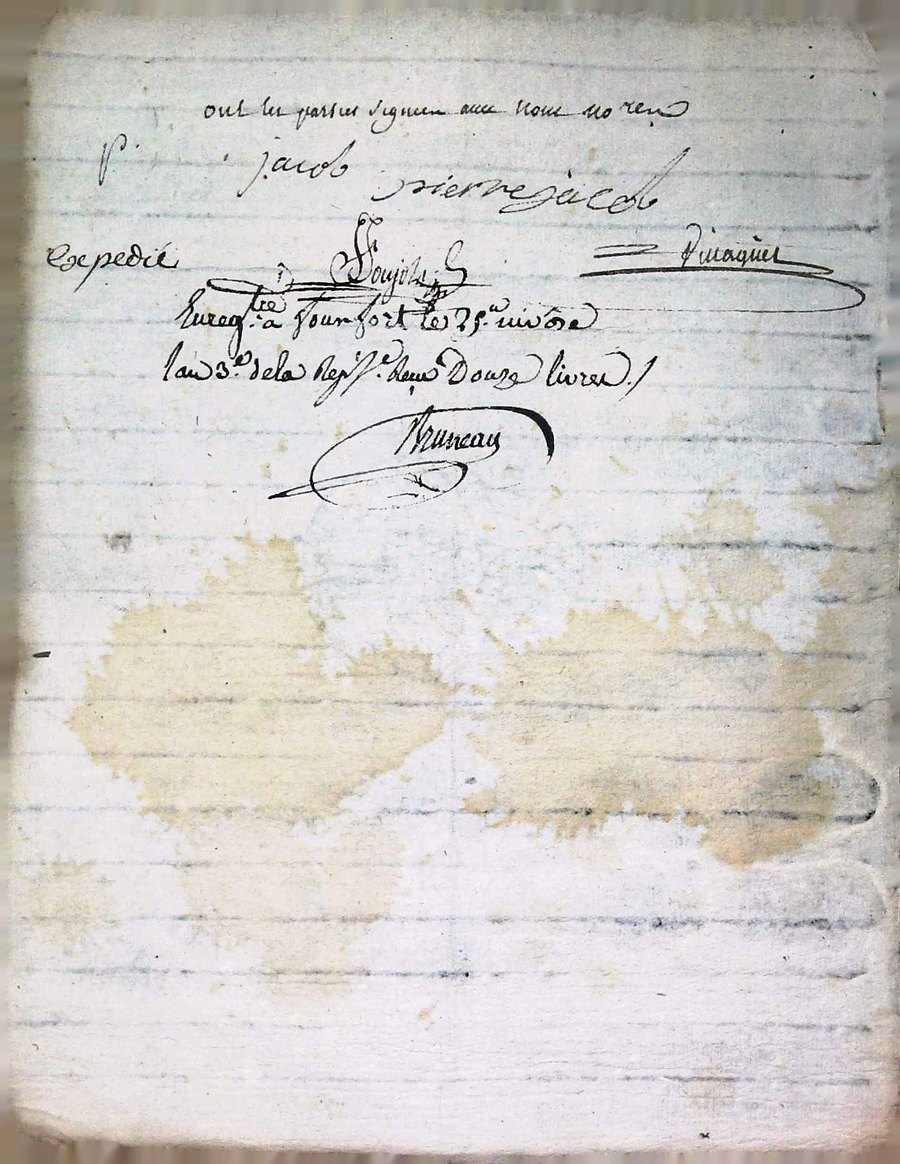 ont les parties signées avec nous no res
P. jacob
pierre jacob
Expedié
Enreg.tré a fourfort le 25.e nivose
l'an 3.e de la Rep.e Reçu Douze livres ./
Bruneau